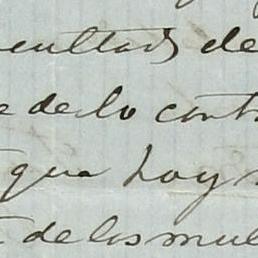 cultad de
e de lo cont
que hoy
de los mul